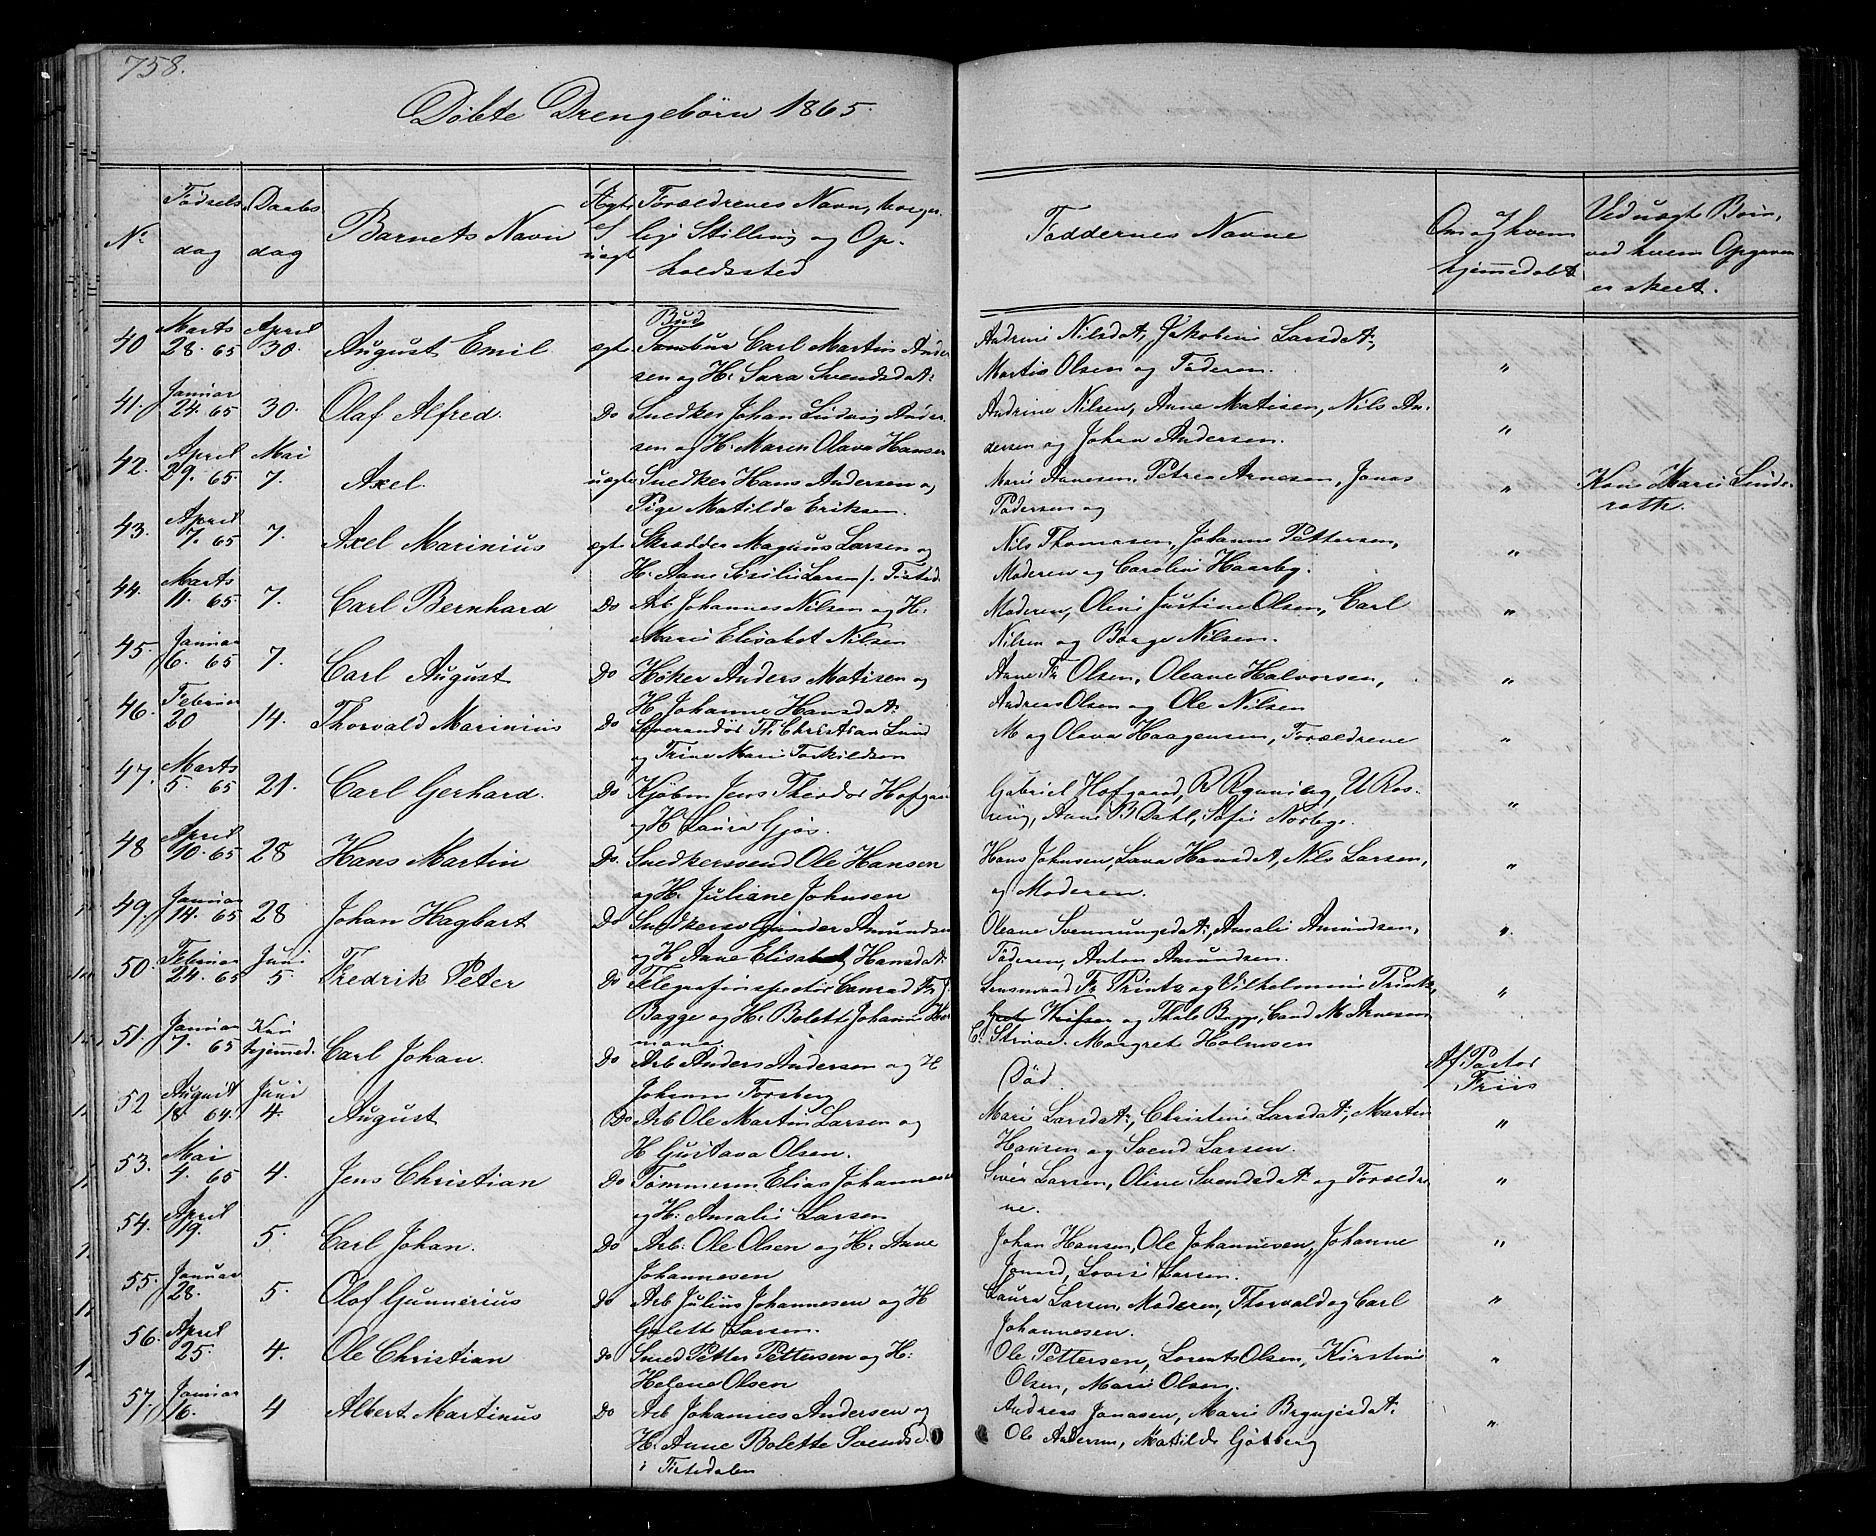 758.
Døbte Drengebørn 1865.
No
Fødsels
dag
Daabs
dag
Barnets Navn
Ægte
/
uægt
Forældrenes Navn, borger
lige Stilling og Op-
holdssted
Faddernes Navne
Om og af hvem
hjemmedøbt
Ved uægte Børn,
ved hvem Opgaven
er skeet.
40 Marts 28. 65 April 30. August Emil ægte Bud Carl Martin Ander
sen og H: Sara Svendsdat:
Andrine Nilsdat, Jakobine Larsdat,
Martin Olsen og Faderen. "
41. Januar 24. 65 30. Olaf Alfred. Do Snedker Johan Ludvig Ander
sen og H: Maren Olava Hansen
Andrine Nilsen, Anne Matisen, Nils An-
dersen og Johan Andersen. "
42. April 29. 65 Mai 7. Axel. uægte Snedker Hans Andersen og
Pige Matilde Eriksen.
Marie Aanesen, Petrea Arnesen, Jonas
Pedersen og " Kone Marie Linde-
roth.
43. April 7. 65 7. Axel Marinius ægte Skrædder Magnus Larsen og
H: Anne Sisilie Larsen f. Tisted.
Nils Thomesen, Johanne Pettersen,
Moderen og Caroline Haarby. "
44. Marts 11. 65 7. Carl Bernhard Do Arb Johannes Nilsen og H:
Marie Elisabet Nilsen
Moderen, Oline Justine Olsen, Carl
Nilsen og Baage Nilsen. "
45. Januar 6. 65 7. Carl August Do Høker Anders Matisen og
H Johanne Hansdat:
Anne Fr Olsen, Oleane Halvorsen,
Andreas Olsen og Ole Nilsen "
46. Februar 20 14. Thorvald Marinius Do Leverandør Th: Christian Lund
og Trine Marie Torkildsen
M og Olava Haagensen, Forældrene "
47. Marts 5. 65 21. Carl Gerhard. Do Kjøbm Jens Theodor Hofgaar
og H Laura Gjøs.
Gabriel Hofgaard, R Rynning, U Ros-
ning, Anne B Dahl, Sofie Norbye. "
48 April 10. 65 28 Hans Martin Do. Snedkersvend Ole Hansen
og H. Juliane Johnsen
Hans Johnsen, Lava Hansdat, Nils Larsen,
og Moderen. "
49. Januar 14. 65 28 Johan Hagbart Do Snedkersv Gunder Amundsen
og H Anne Elisabet Hansdat:
Oleane Svennungsdat:, Amalie Amundsen,
Faderen, Anton Amundsen. "
50. Februar 24. 65 Juni 5 Fredrik Peter Do Telegrafinspectør Conrad Fr J
Bagge og H: Bolette Johanne Her
mana.
Lensmand Fr Printz og Vilhelmine Printz,
og Thale Bagge, Cand M Arnesen
C. Struve. Margrete Holmsen "
51. Januar 7. 65 Kun hjemmed. Carl Johan. Do Arb Anders Andersen og H
Johanne Forsberg
Død Af Pastor
Friis
52 August 18 64. Juni 4. August Do Arb Ole Martin Larsen og
H Gustava Olsen.
Marie Larsdat:, Christine Larsdat:, Martin
Hansen og Svend Larsen. "
53. Mai 4. 65 4. Jens Christian Do Tømmerm. Elias Johannesen
og H: Amalie Larsen
Siver Larsen, Oline Svendsdat og Forældre
ne. "
54. April 19. 5. Carl Johan. Do Arb: Ole Olsen og H: Anne
Johannesen
Johan Hansen, Ole Johannesen, Johanne
Lovise Larsen. "
55. Januar 28. 5. Olaf Gunnerius Do Arb Julius Johannesen og H
Golette Larsen.
Laura Larsen, Moderen, Thorvald og Carl
Johannesen. "
56. April 25 4. Ole Christian Do Smed Petter Pettersen og H:
Helene Olsen
Ole Pettersen, Lorents Olsen, Kirstine
Olsen, Marie Olsen. "
57. Januar 16. 4 Albert Martinus Do Arb Johannes Andersen og
H: Anne Bolette Svendsd.
i Tistedalen
Andreas Jonasen, Marie Brynjesdat:
Ole Andersen, Matilde Gøtberg "